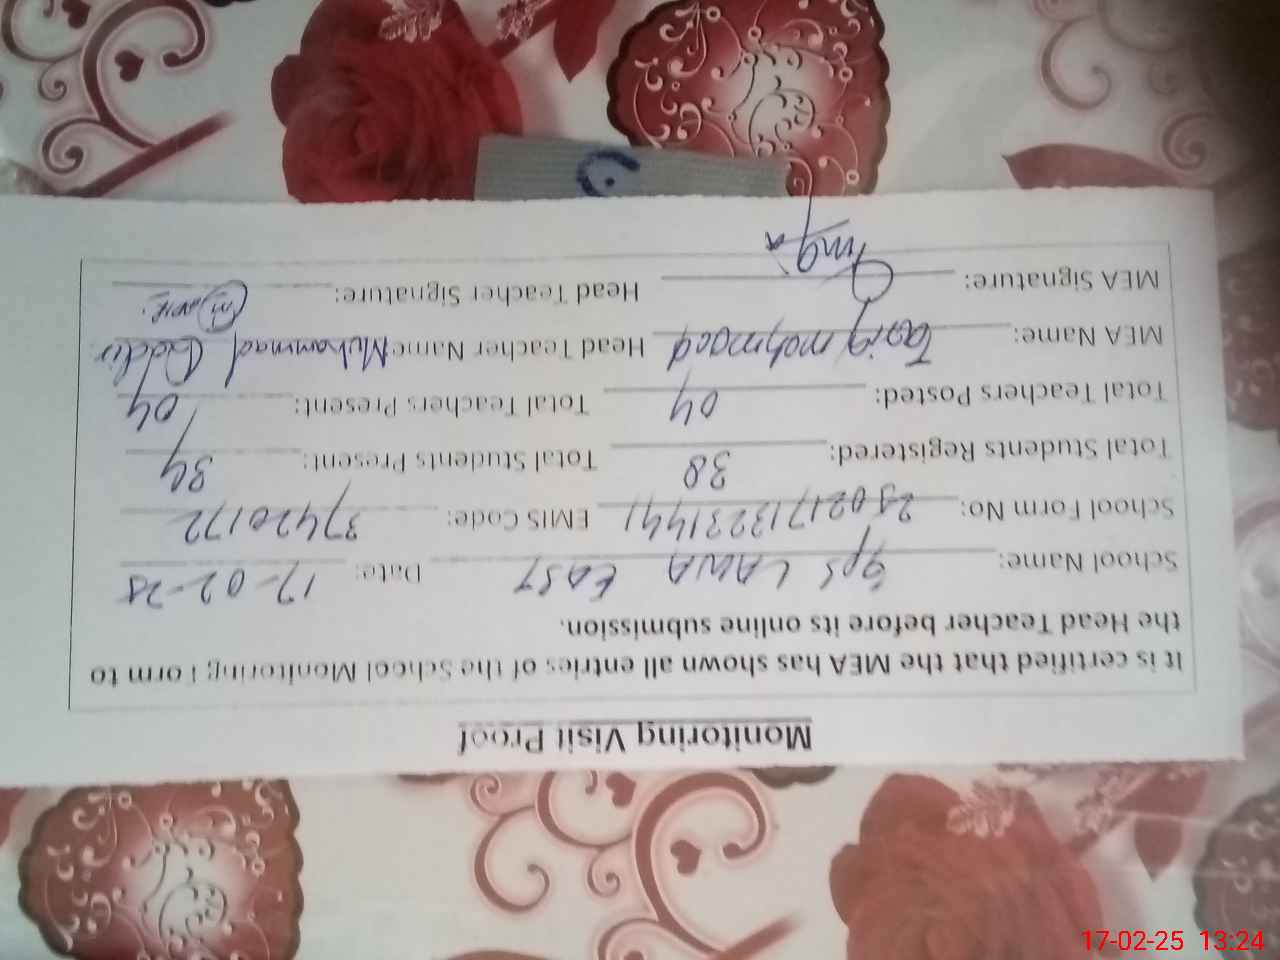 Monitoring Visit Proof
It is certified that the MEA has shown all entries of the School Monitoring Form to
the Head Teacher before its online submission.
School Name: Gps LAWA EAST Date: 17-02-25
School Form No: 25021713231441 EMIS Code: 37420172
Total Students Registered: 38 Total Students Present: 34
Total Teachers Posted: 04 Total Teachers Present: 04
MEA Name: Tariq mahmood Head Teacher Name Muhammad
MEA Signature: Head Teacher Signature:
17-02-25 13:24